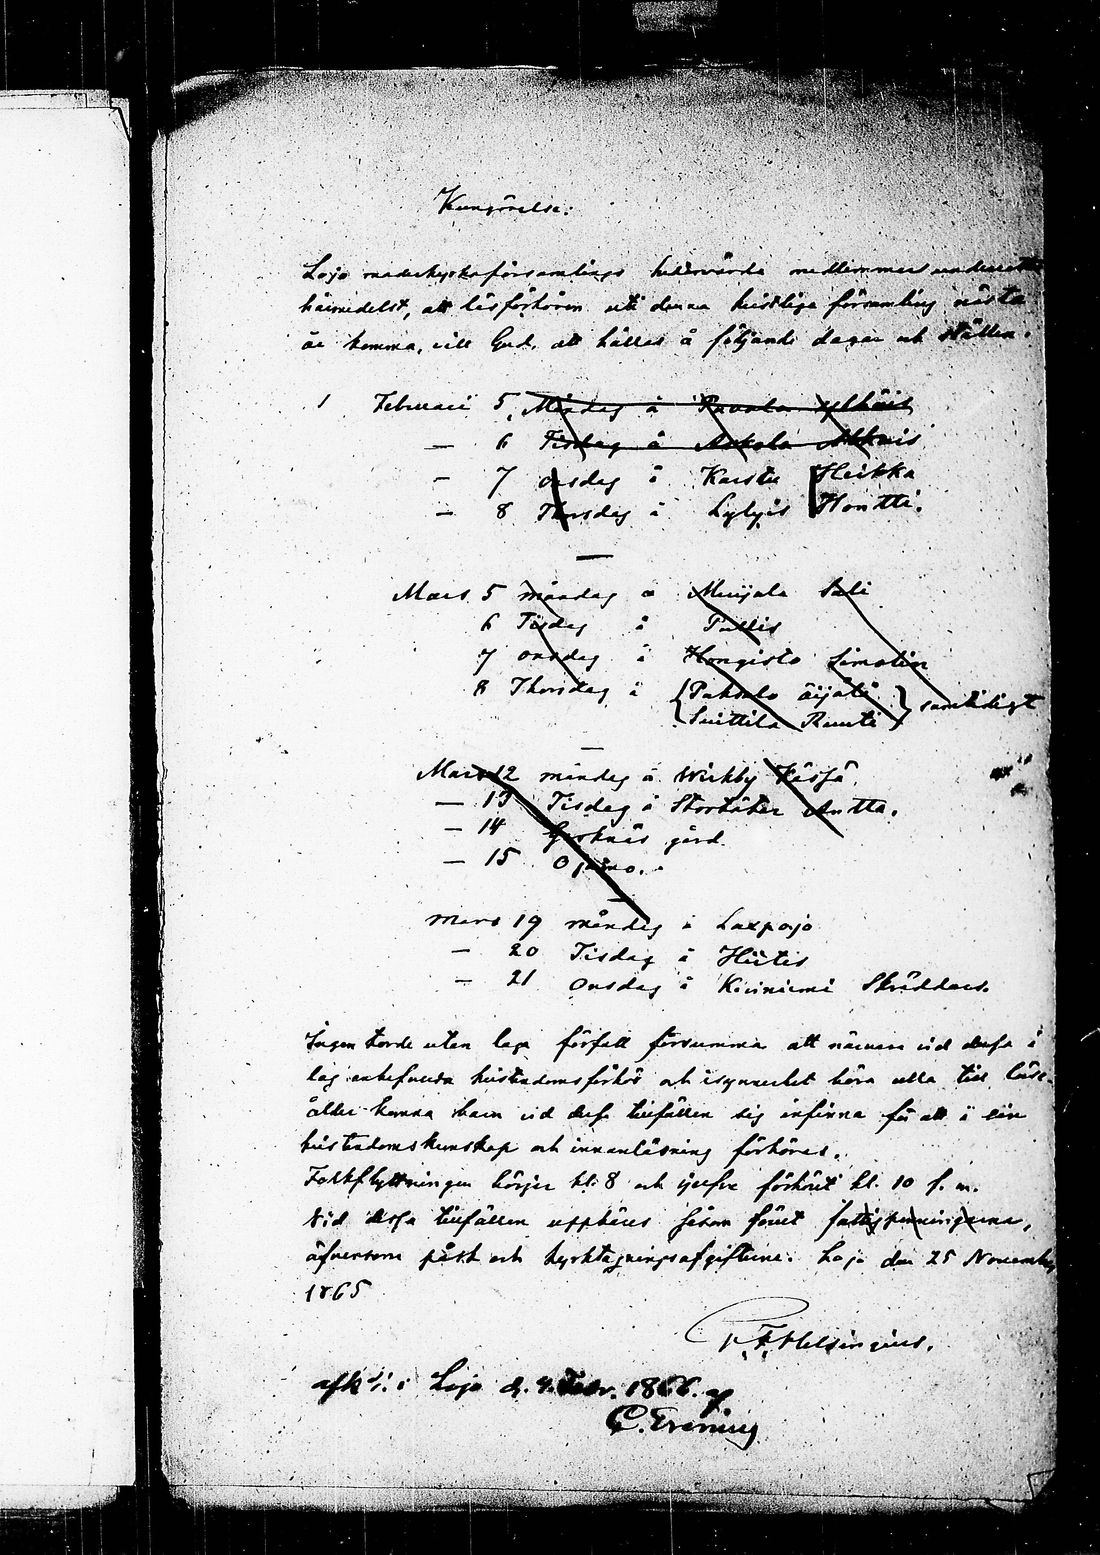 Kungörelse:
Lojo moderkyrkoförsamlings hedervärda medlemmar underrättas
härmedelst, att läsförhören uti denna kristliga församling nästa
år komma, vill Gud, att hållas å följande dagar och ställen:
1 Februari 5, Måndag å Ylhäis
— 6 Tisdag å Askola Alhais
— 7 onsdag å Karstu Heikka
— 8 Thorsdag å Lylyis Hontti.
Mars 5 måndag å Muijala Sali
6 Tisdag å Pullis
7 onsdag å Hongisto Simolin
8 Thorsdag å {Paksalo Äijälä
Suittila Ruuti} samtidigt
Mars 12 måndag å Wirkby Käsjä
— 13 Tisdag å Storbäter Antta.
— 14 Gerknäs gård.
— 15 Ojamo.
Mars 19 måndag å Laxpojo
— 20 Tisdag å Hiitis
— 21 onsdag å Kiviniemi Skräddars.
Ingen torde utan laga förfall försumma att närvara vid dessa i
lag anbefallda kristendomsförhör och isynnerhet böra alla till läse-
ålder komna barn vid dessa tillfällen sig infinna för att i sin
kristendomskunskap och innanläsning förhöras.
Folkflyttningen börjar kl. 8 och sjelfva förhöret kl. 10 f. m.
Vid dessa tillfällen uppbäres såsom förut fattigpenningarna,
äfvensom påsk och kyrktagningsafgifterne. Lojo den 25 November
1865
F. Helsingius.
afk i Lojo d. 4 Febr. 1866. af
C. Grening